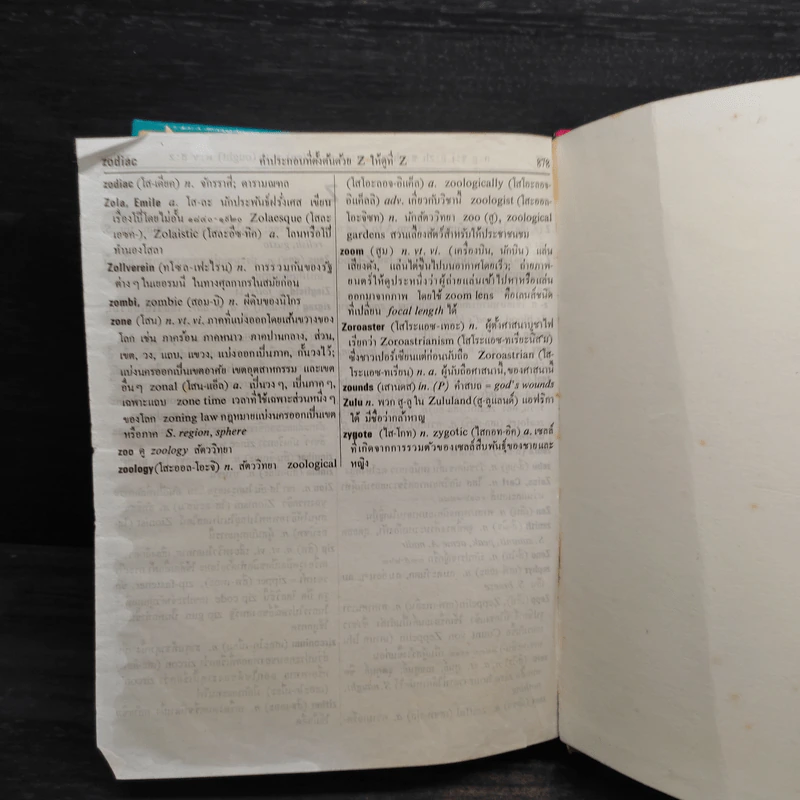 zodiac คำประกอบที่ตั้งต้นด้วย Z ให้ดูที่ Z 878
zodiac (โส-เดียค) n. จักรราศี; ดารามณฑล
Zola, Emile a. โส-ละ นักประพันธ์ฝรั่งเศส เขียน
เรื่องโป๊โดยไม่อั้น ๑๘๔๐-๑๙๒๐ Zolaesque (โสละ
เอซค-), Zolaistic (โสละอีซ-ทิค) a. โลนหรือโป๊
ทำนองโสลา
Zollverein (ทโซล-เฟะไรน) n. การรวมกันของรัฐ
ต่าง ๆ ในเยอรมนี ในทางศุลกากรในสมัยก่อน
zombi, zombie (สอม-บิ) n. ผีดิบของนิโกร
zone (โสน) n. vt. vi. ภาคที่แบ่งออกโดยเส้นขวางของ
โลก เช่น ภาคร้อน ภาคหนาว ภาคปานกลาง, ส่วน,
เขต, วง, แถบ, แขวง, แบ่งออกเป็นภาค, กั้นวงไว้;
แบ่งนครออกเป็นเขตอาศัย เขตอุตสาหกรรม และเขต
อื่น ๆ zonal (โสน-แอ็ล) a. เป็นวง ๆ, เป็นภาค ๆ,
เฉพาะแถบ zone time เวลาที่ใช้เฉพาะส่วนหนึ่ง ๆ
ของโลก zoning law กฎหมายแบ่งนครออกเป็นเขต
หรือภาค S. region, sphere
zoo ดู zoology สัตววิทยา
zoology (โสะออล-โอะจิ) n. สัตววิทยา zoological
(โสโอะลอจ-อิแค็ล) a. zoologically (โสโอะลอจ-
อิแค็ลลิ) adv. เกี่ยวกับวิชานี้ zoologist (โสะออล-
โอะจิซท) n. นักสัตววิทยา zoo (สู), zoological
gardens สวนเลี้ยงสัตว์สำหรับให้ประชาชนชม
zoom (สูม) n. vt. vi. (เครื่องบิน, นักบิน) แล่น
เสียงดัง, แล่นไต่ขึ้นไปบนอากาศโดยเร็ว; ถ่ายภาพ-
ยนตร์ให้ดูประหนึ่งว่าผู้ถ่ายแล่นเข้าไปหาหรือแล่น
ออกมาจากภาพ โดยใช้ zoom lens คือเลนส์ชนิด
ที่เปลี่ยน focal length ได้
Zoroaster (โสโระแอซ-เทอะ) n. ผู้ตั้งศาสนาบูชาไฟ
เรียกว่า Zoroastrianism (โสโระแอซ-ทเรียะนิสม)
ซึ่งชาวเปอร์เซียแต่ก่อนนับถือ Zoroastrian (โส-
โระแอซ-ทเรียน) n. a. ผู้นับถือศาสนานี้, ของศาสนานี้
zounds (เสานดส) in. (P) คำสบถ = god's wounds
Zulu n. พวก สู-ลู ใน Zululand (สู-ลูแลนด์) แอฟริกา
ใต้ มีชื่อว่ากล้าหาญ
zygote (ไส-โกท) n. zygotic (ไสกอท-อิค) a. เซลล์
ที่เกิดจากการรวมตัวของเซลล์สืบพันธุ์ของชายและ
หญิง